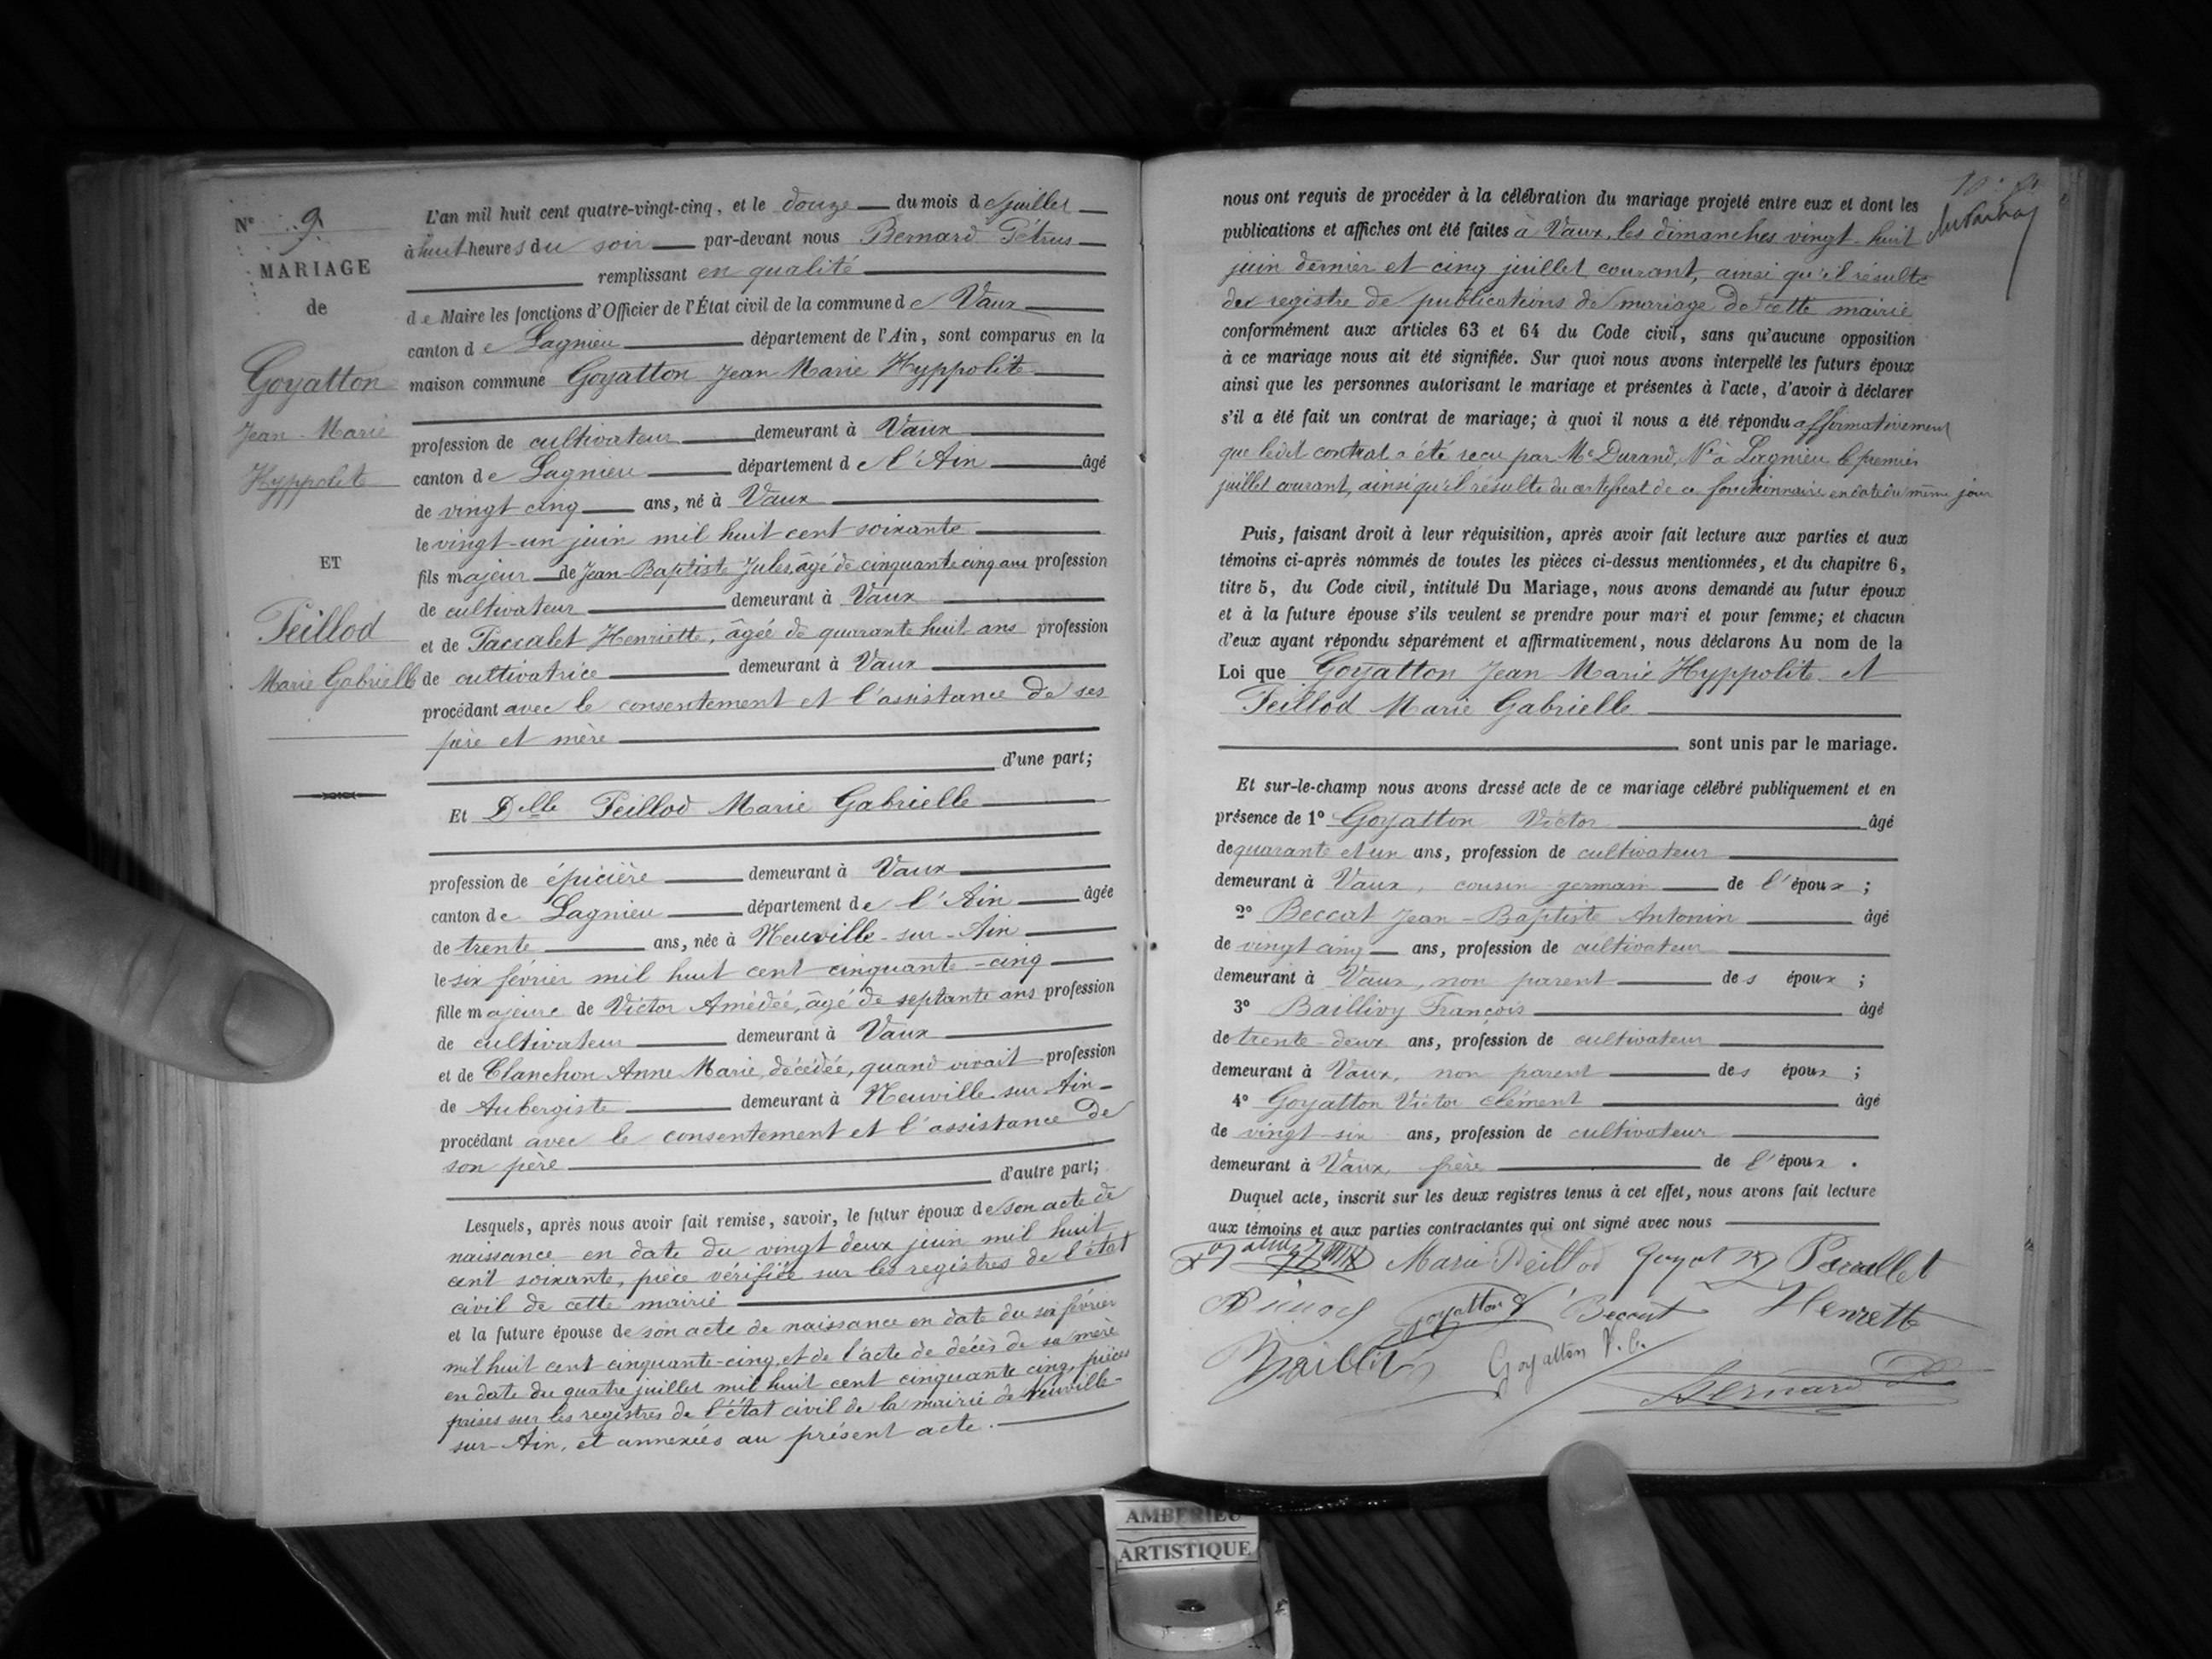 N° 9
MARIAGE
de
Goyatton
Jean-Marie
Hyppolite
ET
Peillod
Marie Gabrielle
L'an mil huit cent quatre-vingt-cinq, et le douze du mois de juillet
à huit heures du soir par-devant nous Bernard Pétrus
remplissant en qualité
de Maire les fonctions d'Officier de l'État civil de la commune de Vaux
canton de Lagnieu département de l'Ain, sont comparus en la
maison commune Goyatton Jean Marie Hyppolite
profession de cultivateur demeurant à Vaux
canton de Lagnieu département de l'Ain âgé
de vingt cinq ans, né à Vaux
le vingt-un juin mil huit cent soixante
fils majeur de Jean-Baptiste Jules, âgé de cinquante cinq ans profession
de cultivateur demeurant à Vaux
et de Paccalet Henriette, âgée de quarante huit ans profession
de cultivatrice demeurant à Vaux
procédant avec le consentement et l'assistance de ses
père et mère
d'une part;
Et Delle Peillod Marie Gabrielle
profession de épicière demeurant à Vaux
canton de Lagnieu département de l'Ain âgée
de trente ans, née à Neuville-sur-Ain
le six février mil huit cent cinquante-cinq
fille majeure de Victor Amédée, âgé de septante ans profession
de cultivateur demeurant à Vaux
et de Clanchon Anne Marie, décédée, quand vivait profession
de Aubergiste demeurant à Neuville sur Ain
procédant avec le consentement et l'assistance de
son père
d'autre part;
Lesquels, après nous avoir fait remise, savoir, le futur époux de son acte de
naissance en date du vingt deux juin mil huit
cent soixante, pièce vérifiée sur les registres de l'état
civil de cette mairie
et la future épouse de son acte de naissance en date du six février
mil huit cent cinquante-cinq, et de l'acte de décès de sa mère
en date du quatre juillet mil huit cent cinquante cinq, pièces
prises sur les registres de l'état civil de la mairie de Neuville-
sur-Ain, et annexées au présent acte.
nous ont requis de procéder à la célébration du mariage projeté entre eux et dont les
publications et affiches ont été faites à Vaux, les dimanches vingt-huit
juin dernier et cinq juillet courant, ainsi qu'il résulte
du registre de publications de mariage de cette mairie
conformément aux articles 63 et 64 du Code civil, sans qu'aucune opposition
à ce mariage nous ait été signifiée. Sur quoi nous avons interpellé les futurs époux
ainsi que les personnes autorisant le mariage et présentes à l'acte, d'avoir à déclarer
s'il a été fait un contrat de mariage; à quoi il nous a été répondu affirmativement
que ledit contrat a été reçu par Me Durand, Nre à Lagnieu le premier
juillet courant, ainsi qu'il résulte du certificat de ce fonctionnaire en date du même jour
Puis, faisant droit à leur réquisition, après avoir fait lecture aux parties et aux
témoins ci-après nommés de toutes les pièces ci-dessus mentionnées, et du chapitre 6,
titre 5, du Code civil, intitulé Du Mariage, nous avons demandé au futur époux
et à la future épouse s'ils veulent se prendre pour mari et pour femme; et chacun
d'eux ayant répondu séparément et affirmativement, nous déclarons Au nom de la
Loi que Goyatton Jean Marie Hyppolite et
Peillod Marie Gabrielle
sont unis par le mariage.
Et sur-le-champ nous avons dressé acte de ce mariage célébré publiquement et en
présence de 1° Goyatton Victor âgé
de quarante et un ans, profession de cultivateur
demeurant à Vaux, cousin germain de l'époux;
2° Beccat Jean-Baptiste Antonin âgé
de vingt cinq ans, profession de cultivateur
demeurant à Vaux, non parent des époux;
3° Baillivy François âgé
de trente-deux ans, profession de cultivateur
demeurant à Vaux, non parent des époux;
4° Goyatton Victor Clément âgé
de vingt-six ans, profession de cultivateur
demeurant à Vaux, frère de l'époux.
Duquel acte, inscrit sur les deux registres tenus à cet effet, nous avons fait lecture
aux témoins et aux parties contractantes qui ont signé avec nous
Marie Peillod Paccallet
Goyatton Beccat Henrette
Goyatton V. C.
Bernard
AMBERIEU
ARTISTIQUE